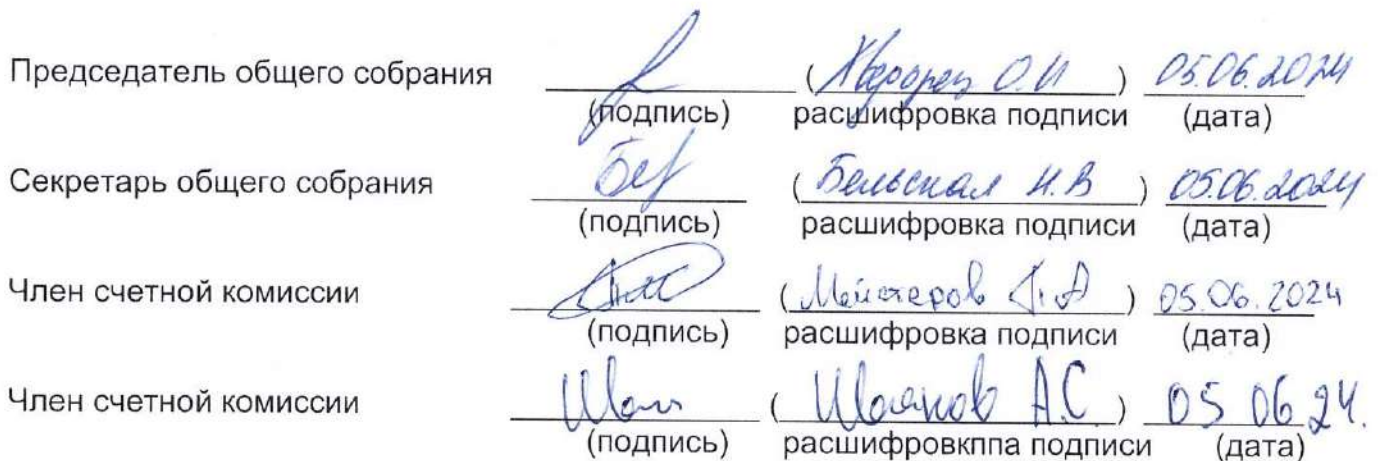 Председатель общего собрания ( О.И ) 05.06.2024
(подпись) расшифровка подписи (дата)
Секретарь общего собрания ( Бельская Н.В ) 05.06.2024
(подпись) расшифровка подписи (дата)
Член счетной комиссии ( Мейстеров ) 05.06.2024
(подпись) расшифровка подписи (дата)
Член счетной комиссии ( А.С. ) 05 06.24.
(подпись) расшифровкппа подписи (дата)